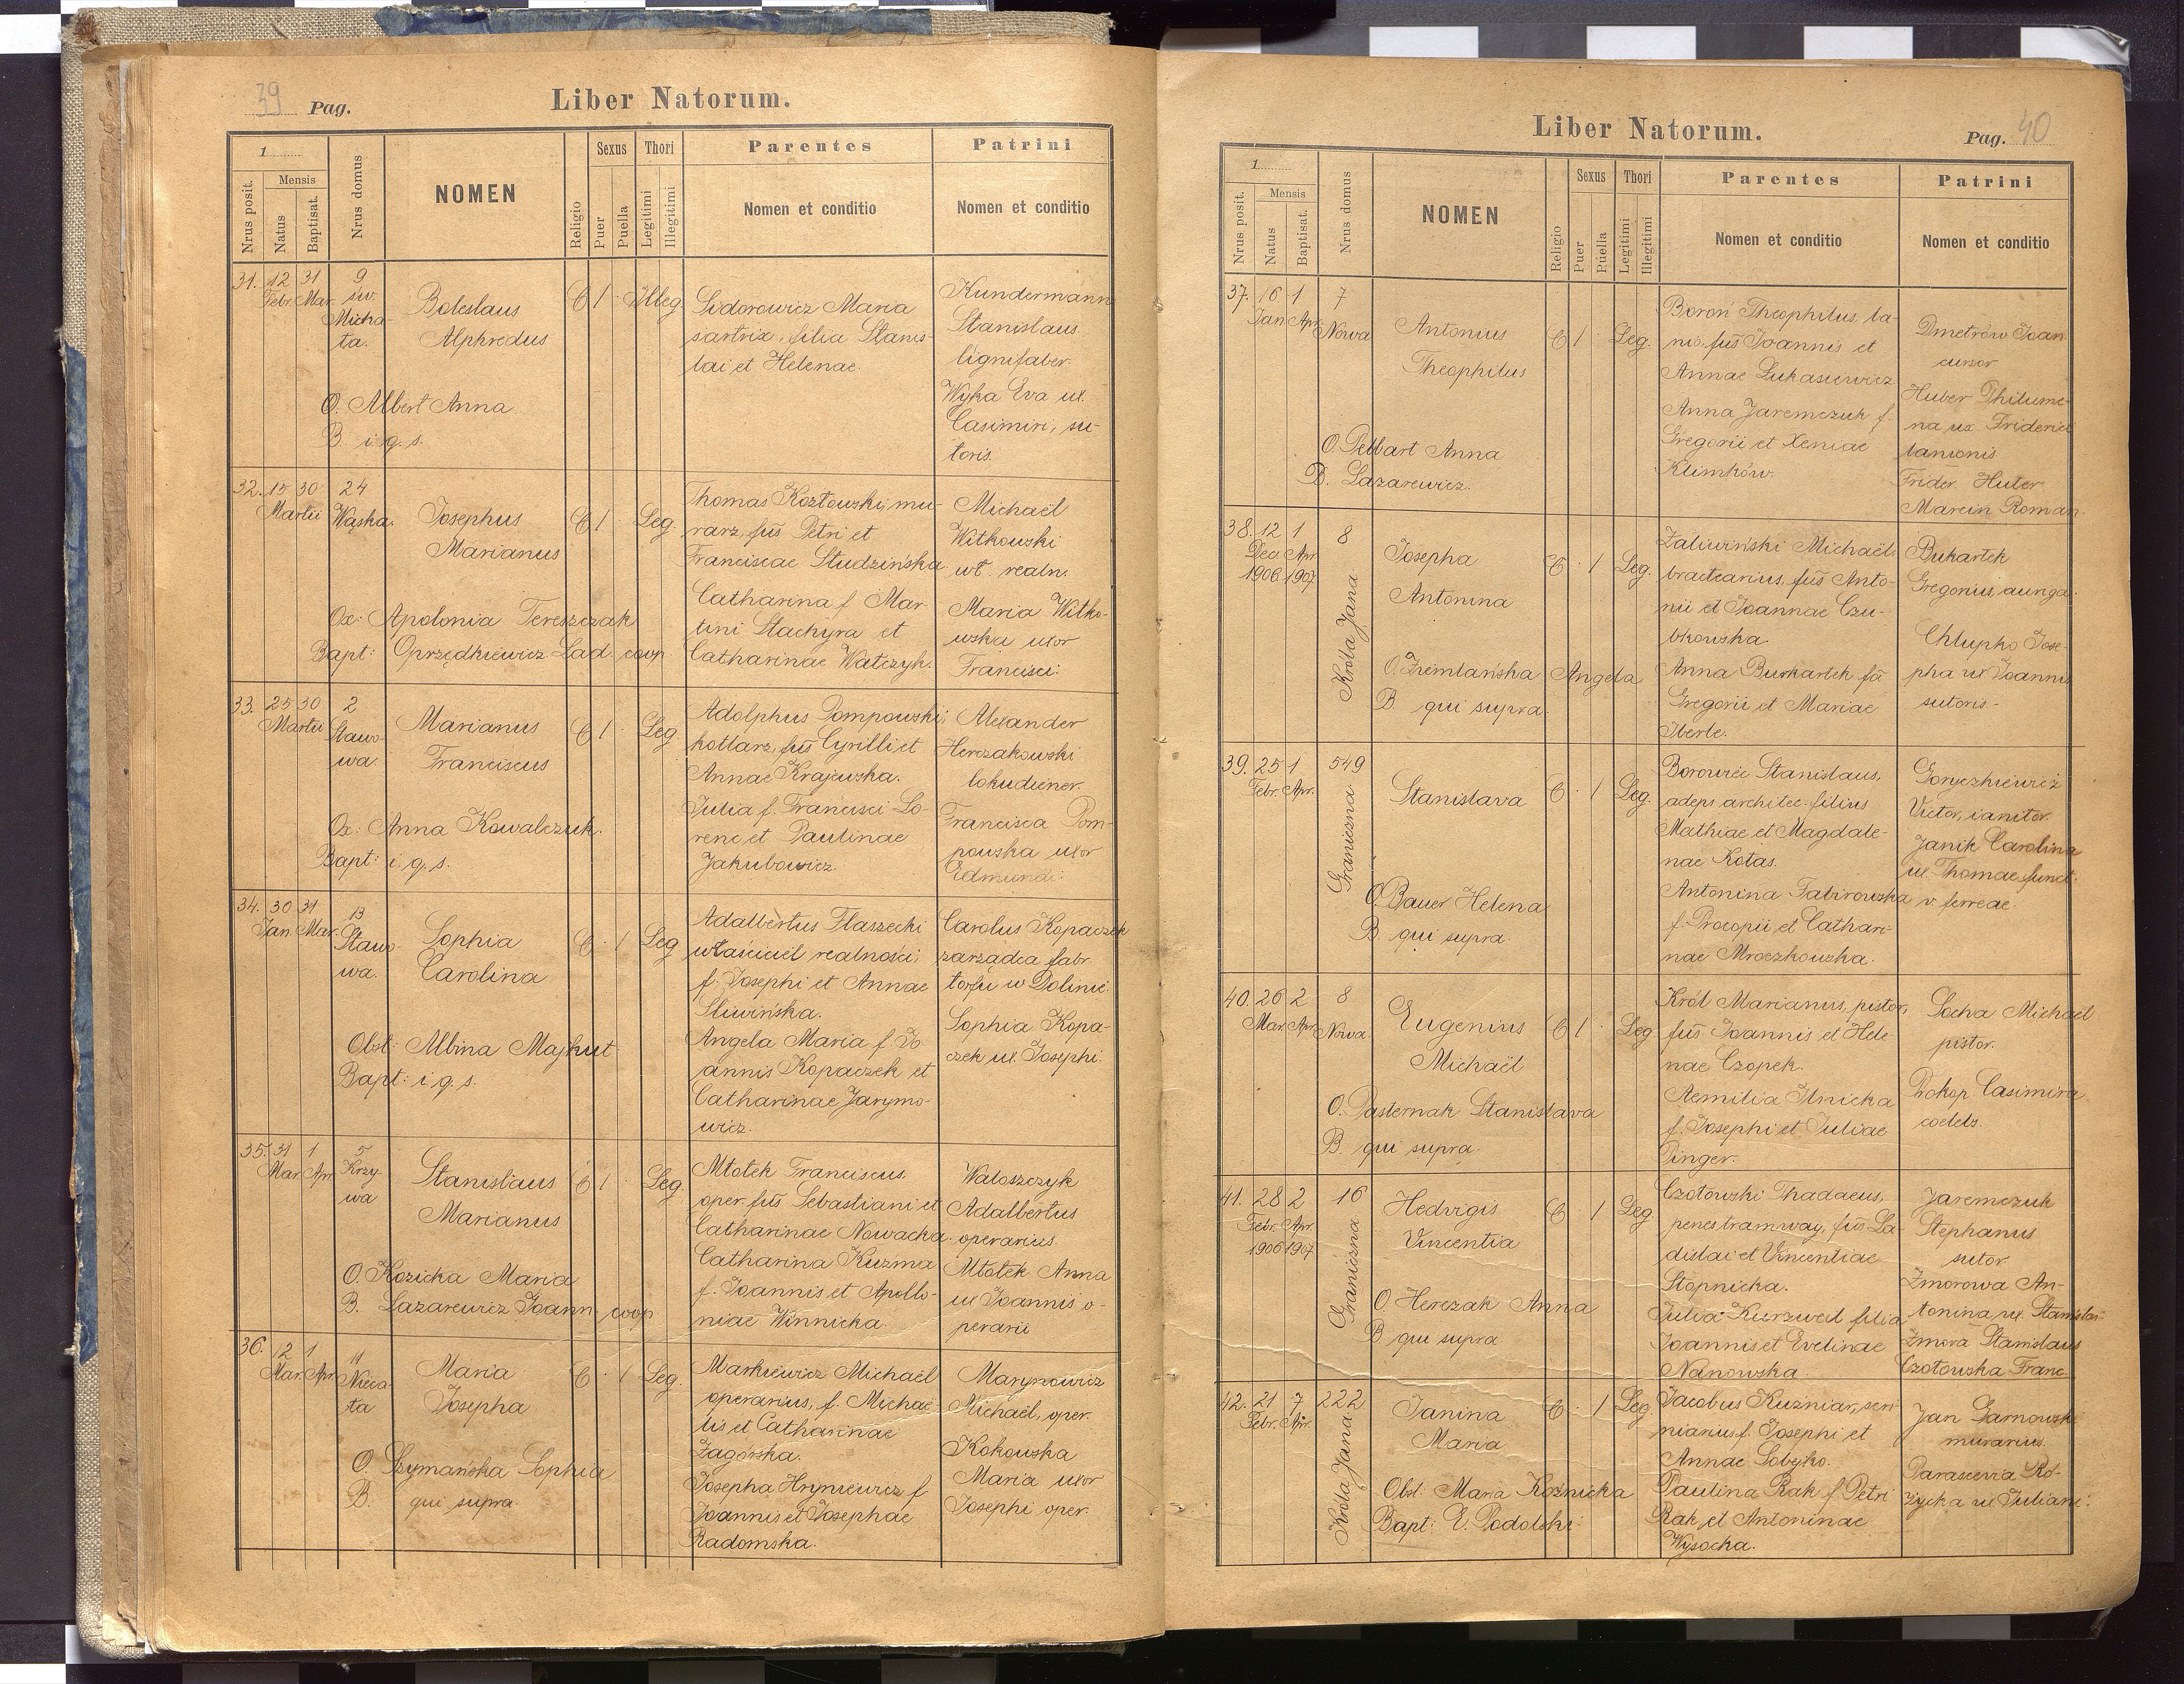 39
Pag.
Liber Natorum.
1
Nrus posit.
Mensis
Natus
Baptisat.
Nrus domus
NOMEN
Religio
Sexus
Puer
Puella
Thori
Legitimi
Illegitimi
Parentes
Nomen et conditio
Patrini
Nomen et conditio
31. 12 31 9
Febr. Mar. św.
Micha-
ła.
Boleslaus
Alphredus
C 1 · Illeg
Sidorowicz Maria
sartrix, filia Stanis-
lai et Helenae.
Kundermann
Stanislaus
lignifaber.
Wyka Eva ux.
Casimiri, su-
toris.
O. Albert Anna
B. i. q. s.
32. 15 30 24
Martii Wąska.
Josephus
Marianus
C 1 · Leg.
Thomas Kozłowski, mu-
rarz, fus Petri et
Franciscae Studzińska
Catharina f. Mar-
tini Stachyra et
Catharinae Watczyk.
Michaël
Witkowski
wł. realn.
Maria Witko-
wska uxor
Francisci.
Ox: Apolonia Tereszczak
Bapt: Oprzędkiewicz Lad. coop.
33. 25 30 2
Martii Sławo-
wa.
Marianus
Franciscus
C 1 · Leg.
Adolphus Pompowski,
kotlarz, fus Cyrilli et
Annae Krajewska.
Julia f. Francisci Lo-
renc et Paulinae
Jakubowicz.
Alexander
Herczakowski
lokudiener.
Francisca Pom-
powska uxor
Edmundi.
Ox: Anna Kowalczuk.
Bapt: i. q. s.
34. 30 31 13
Jan. Mar. Sławo-
wa.
Sophia
Carolina
C · 1 Leg
Adalbertus Flaszecki
właściciel realności;
f. Josephi et Annae
Sliwińska.
Angela Maria f. Jo-
annis Kopaczek et
Catharinae Jarymo-
wicz.
Carolus Kopaczek
zarządca fabr.
torfu w Dolinie.
Sophia Kopa-
czek ux. Josephi.
Obst: Albina Majkut
Bapt: i. q. s.
35. 31 1 5
Mar. Apr. Krzy-
wa
Stanislaus
Marianus
C 1 · Leg.
Młotek Franciscus,
oper. fus Sebastiani et
Catharinae Nowacka.
Catharina Kuzma
f. Joannis et Apollo-
niae Winnicka.
Waloszczyk
Adalbertus
operarius.
Młotek Anna
ux Joannis o-
perarii
O. Kozicka Maria
B. Lazarewicz Joann. coop.
36. 12 1 11
Mar. Apr. Nieca-
ła
Maria
Josepha
C · 1 Leg.
Markiewicz Michaël
operarius, f. Michaë-
lis et Catharinae
Zagórska.
Josepha Hryniewicz f.
Joannis et Josephae
Radomska.
Marynowicz
Michaël, oper.
Kokowska
Maria uxor
Josephi oper.
O. Szymańska Sophia
B. qui supra.
Liber Natorum.
Pag. 40
1
Nrus posit.
Mensis
Natus
Baptisat.
Nrus domus
NOMEN
Religio
Sexus
Puer
Puella
Thori
Legitimi
Illegitimi
Parentes
Nomen et conditio
Patrini
Nomen et conditio
37. 16 1 7
Jan. Apr. Nowa
Antonius
Theophilus
C 1 Leg.
Boroń Theophilus, la-
nio, fus Joannis et
Annae Lukasiewicz
Anna Jaremczuk f.
Gregorii et Xeniae
Klimków.
Dmetrów Joan.
cursor
Huber Philume-
na ux. Friderici
lanionis.
Frider. Huber
Marcin Roman.
O. Pelbart Anna
B. Lazarewicz.
38. 12 1 8
Dec. Apr.
1906 1907
Króla Jana
Josepha
Antonina
C · 1 Leg.
Zaliwiński Michaël
bractearius, fus Anto-
nii et Joannae Czu-
bkowska.
Anna Burkartek fa
Gregorii et Mariae
Iberle.
Bukartek
Gregorius, auriga.
Chlupko Jose-
pha ux Joannis
sutoris.
O. Ziemlańska Angela
B. qui supra.
39. 25 1 549
Febr. Apr.
Graniczna
Stanislava
C · 1 Leg.
Borowiec Stanislaus,
adeps architec. filius
Mathiae et Magdale-
nae Kotas.
Antonina Fabirowska
f. Procopii et Cathari-
nae Mroczkowska.
Goryczkiewicz
Victor, ianitor.
Janik Carolina
ux. Thomae, funct.
v. ferreae.
O. Bauer Helena
B. qui supra.
40. 26 2 8
Mar. Apr. Nowa.
Eugenius
Michaël
C 1 · Leg.
Król Marianus, pistor,
fus Joannis et Hele-
nae Czopek.
Aemilia Ilnicka
f. Josephi et Juliae
Pinger.
Socha Michaël
pistor.
Prokop Casimira
coelebs.
O. Pasternak Stanislava
B. qui supra.
41. 28 2 16
Febr. Apr.
1906 1907
Graniczna
Hedvigis
Vincentia
C · 1 Leg
Czołowski Thadaeus,
penes tramway, fus La-
dislai et Vincentiae
Stopnicka.
Julia Kurzweil filia
Joannis et Evelinae
Nanowska.
Jaremczuk
Stephanus
sutor
Zmorowa An-
tonina, ux. Stanislai
Zmora Stanislaus
Czołowska Franc.
O. Herczak Anna
B. qui supra.
42. 21 7 222
Febr. Apr.
Króla Jana
Janina
Maria
C · 1 Leg
Jacobus Kuzniar, seri-
nianus f. Josephi et
Annae Sobyko.
Paulina Rak f. Petri
Rak et Antoninae
Wysocka.
Jan Garnowski
murarius.
Parascevia Ro-
życka ux Juliani.
Obst. Maria Koźnicka
Bapt: E. Podolski.